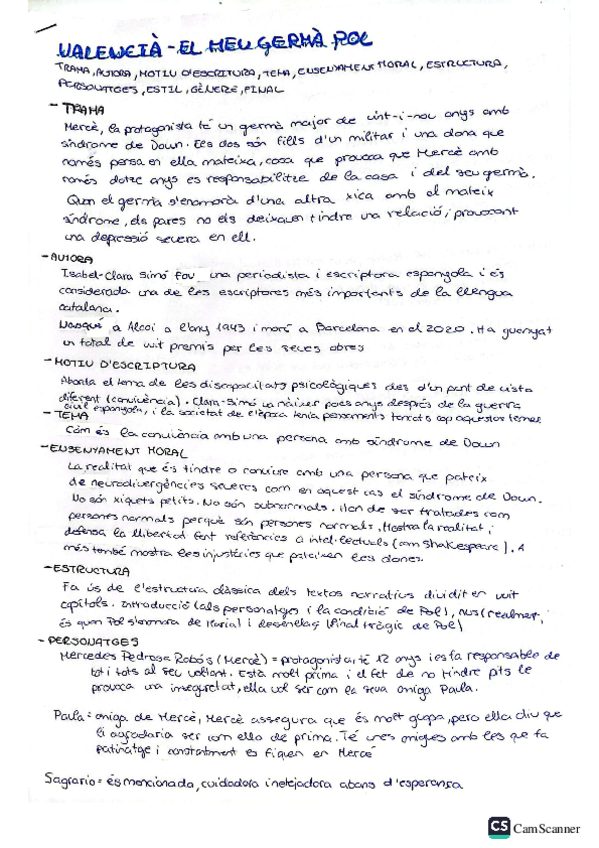 VALENCIÀ - EL MEU GERMÀ POL
TRAMA, AUTORA, MOTIU D'ESCRITURA, TEMA, ENSENYAMENT MORAL, ESTRUCTURA,
PERSONATGES, ESTIL, GÈNERE, FINAL
- TRAMA
Mercè, la protagonista té un germà major de vint-i-nou anys amb
síndrome de Down. Els dos són fills d'un militar i una dona que
només pensa en ella mateixa, cosa que provoca que Mercè amb
només dotze anys es responsabilitze de la casa i del seu germà.
Quan el germà s'enamorà d'una altra xica amb el mateix
síndrome, els pares no els deixaven tindre una relació, provocant
una depressió severa en ell.
- AUTORA
Isabel-Clara Simó fou una periodista i escriptora espanyola i és
considerada una de les escriptores més importants de la llengua
catalana.
Nasqué a Alcoi a l'any 1943 i morí a Barcelona en el 2020. Ha guanyat
un total de vuit premis per les seues obres
- MOTIU D'ESCRIPTURA
Aborda el tema de les discapacitats psicològiques des d'un punt de vista
diferent (convivència). Clara-Simó va nàixer pocs anys després de la guerra
civil espanyola, i la societat de l'època tenia pensaments tancats cap aquestos temes
- TEMA
Com és la convivència amb una persona amb síndrome de Down
- ENSENYAMENT MORAL
La realitat que és tindre o conviure amb una persona que pateix
de neurodivergències severes com en aquest cas el síndrome de Down.
No són xiquets petits. No són subnormals. Han de ser tratades com
persones normals perquè són persones normals. Mostra la realitat i
defensa la llibertat fent referències a intel·lectuals (com Shakespeare). A
més també mostra les injustícies que pateixen les dones.
- ESTRUCTURA
Fa ús de l'estructura clàssica dels textos narratius dividit en vuit
capítols. Introducció (als personatges i la condició de Pol), NUS (realment
és quan Pol s'enamora de Maria) i desenllaç (final tràgic de Pol)
- PERSONATGES
Mercedes Pedrosa Robós (Mercè) = protagonista, té 12 anys i esfa responsable de
tot i tots al seu voltant. Està molt prima i el fet de no tindre pits le
provoca una inseguretat, ella vol ser com la seua amiga Paula.
Paula = amiga de Mercè, Mercè assegura que és molt guapa, pero ella diu que
li agradaria ser com ella de prima. Té unes amigues amb les que fa
patinatge i constantment es fiquen en Mercè
Sagrario = és mencionada, cuidadora i netejadora abans d'esperança
CS CamScanner